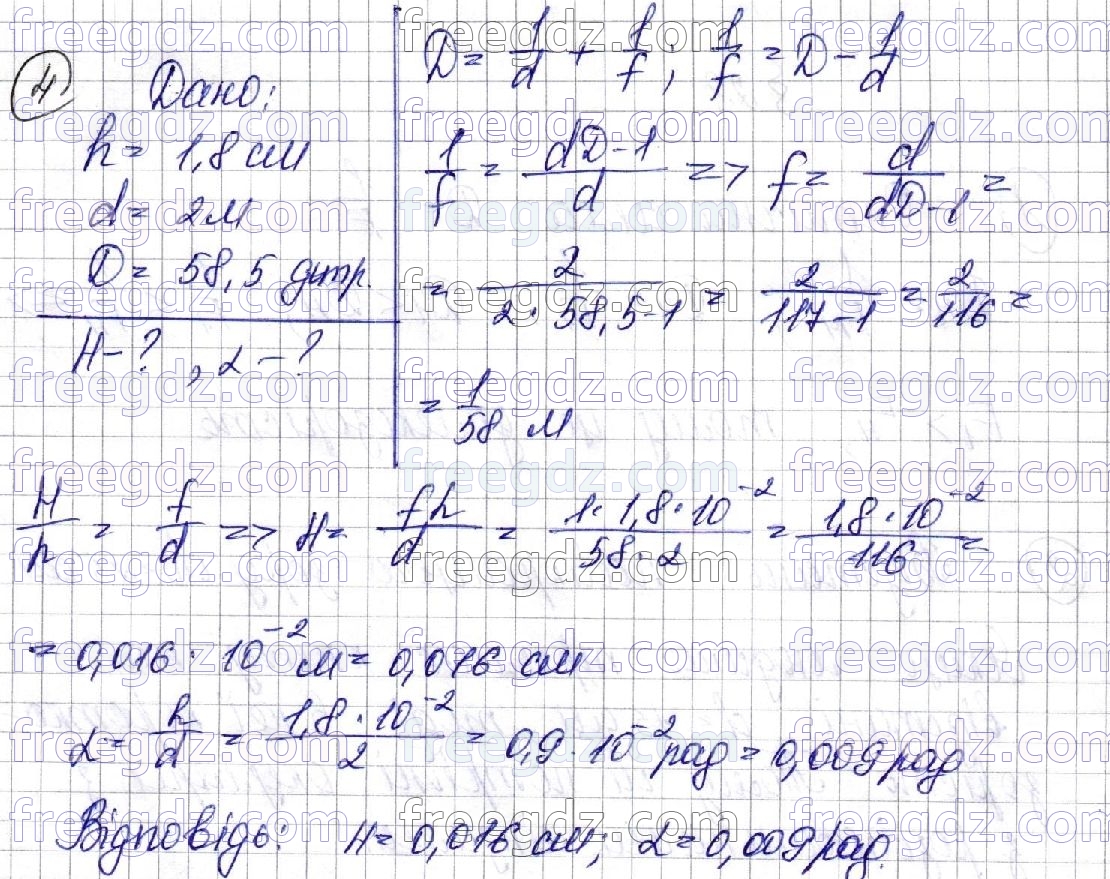 4
Дано:
h = 1,8 см
d = 2м
D = 58,5 дптр.
H - ? , α - ?
D = 1/d + 1/f ; 1/f = D - 1/d
1/f = dD-1/d => f = d/dD-1 =
= 2/2·58,5-1 = 2/117-1 = 2/116 =
= 1/58 м
H/h = f/d => H = fh/d = 1·1,8·10⁻²/58·2 = 1,8·10⁻²/116 =
= 0,016 · 10⁻² м = 0,016 см
α = h/d = 1,8·10⁻²/2 = 0,9·10⁻² рад = 0,009 рад
Відповідь: H = 0,016 см; α = 0,009 рад.
freegdz.com